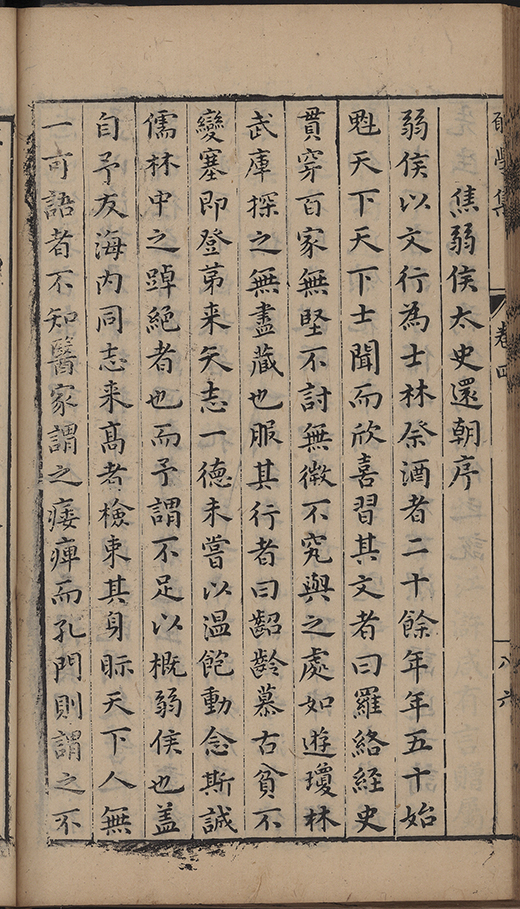 學集
卷四
八六
焦弱侯太史還朝序
弱侯以文行為士林祭酒者二十餘年年五十始
魁天下天下士聞而欣喜習其文者曰羅絡經史
貫穿百家無堅不討無微不究與之處如遊瓊林
武庫探之無盡藏也服其行者曰齠齡慕古貧不
變塞即登第来矢志一德未嘗以温飽動念斯誠
儒林中之踔絕者也而予謂不足以概弱侯也盖
自予友海内同志来高者檢束其身眎天下人無
一可語者不知醫家謂之痿痺而孔門則謂之不